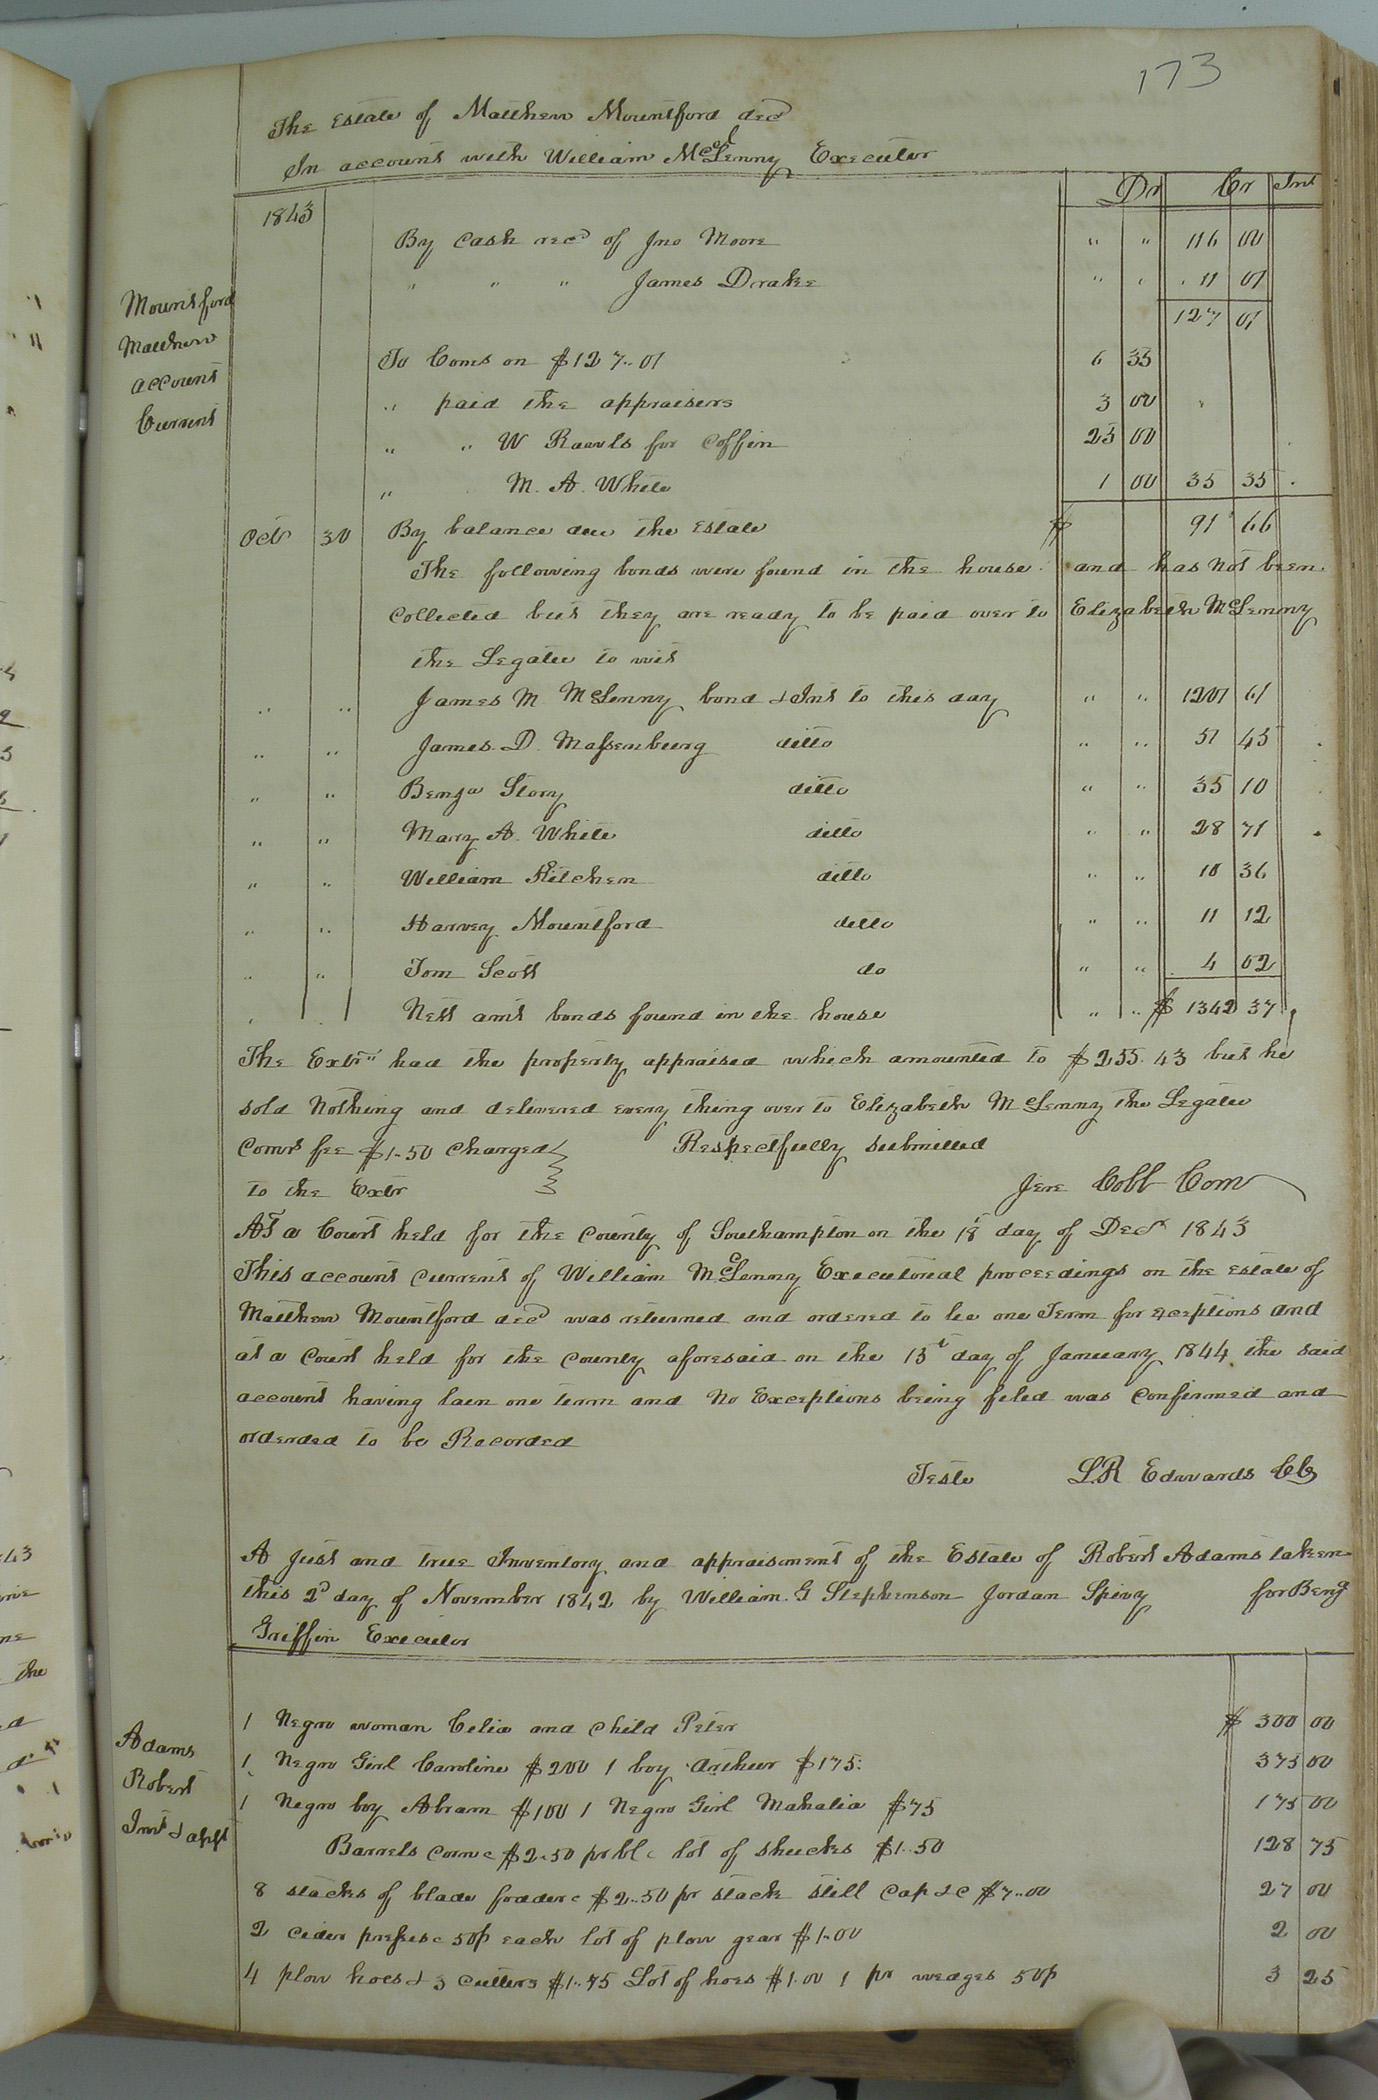 173
The Estate of Matthew Mountford decd
In account with William McLenny Executor
Dr Cr Int
1843
By Cash recd of Jno Moore " " 116 00
" " " James Drake " " 11 01
127 01
Mountford
Matthew
account
Current
To Coms on $127..01 6 35
" paid the appraisers 3 00
" " W Rawls for Coffin 25 00
" M. A. White 1 00 35 35
Oct 30 By balance due the Estate $ 91 66
The following bonds were found in the house and has not been
Collected but they are ready to be paid over to Elizabeth McLenny
the Legatee to wit
" " James M McLenny bond & Int to this day " " 1201 61
" " James. D. Massenburg ditto " " 51 45
" " Benja Story ditto " " 35 10
" " Mary A. White ditto " " 28 71
" " William Kitchen ditto " " 10 36
" " Harvey Mountford ditto " " 11 12
" " Tom Scott do " " 4 02
" Nett amt bonds found in the house " " $ 1342 37
The Extr had the property appraised which amounted to $255.43 but he
sold Nothing and delivered every thing over to Elizabeth McLenny the Legatee
Comr fee $1-50 Charged Respectfully submitted
to the Extr Jere Cobb Com
At a Court held for the County of Southampton on the 18 day of Decr 1843
This account Current of William McLenny Executorial proceedings on the estate of
Matthew Mountford decd was returned and ordered to lie one Term for exceptions and
at a Court held for the County aforesaid on the 15t day of January 1844 the said
account having lain one term and No Exceptions being filed was Confirmed and
orderded to be Recorded
Teste L.R Edwards Clk
A Just and true Inventory and appraisment of the Estate of Robert Adams taken
this 2d day of November 1842 by William. G Stephenson Jordan Spivy for Benj
Griffin Executor
Adams
Robert
Invt & appt
1 Negro woman Celia and child Peter $ 300 00
1 Negro Girl Caroline $200 1 boy Arthur $175: 375 00
1 Negro boy Abram $100 1 Negro Girl Mahalia $75 175 00
Barrels Corn c $2.50 pr bl c lot of shucks $1..50 128 75
8 stacks of blade fodder c $2..50 pr stack still Cap &c $7..00 27 00
2 cider presses c 50p each lot of plow gear $1.00 2 00
4 plow hoes & 3 Cutters $1..75 Lot of hoes $1.00 1 pr wedges 50p 3 25